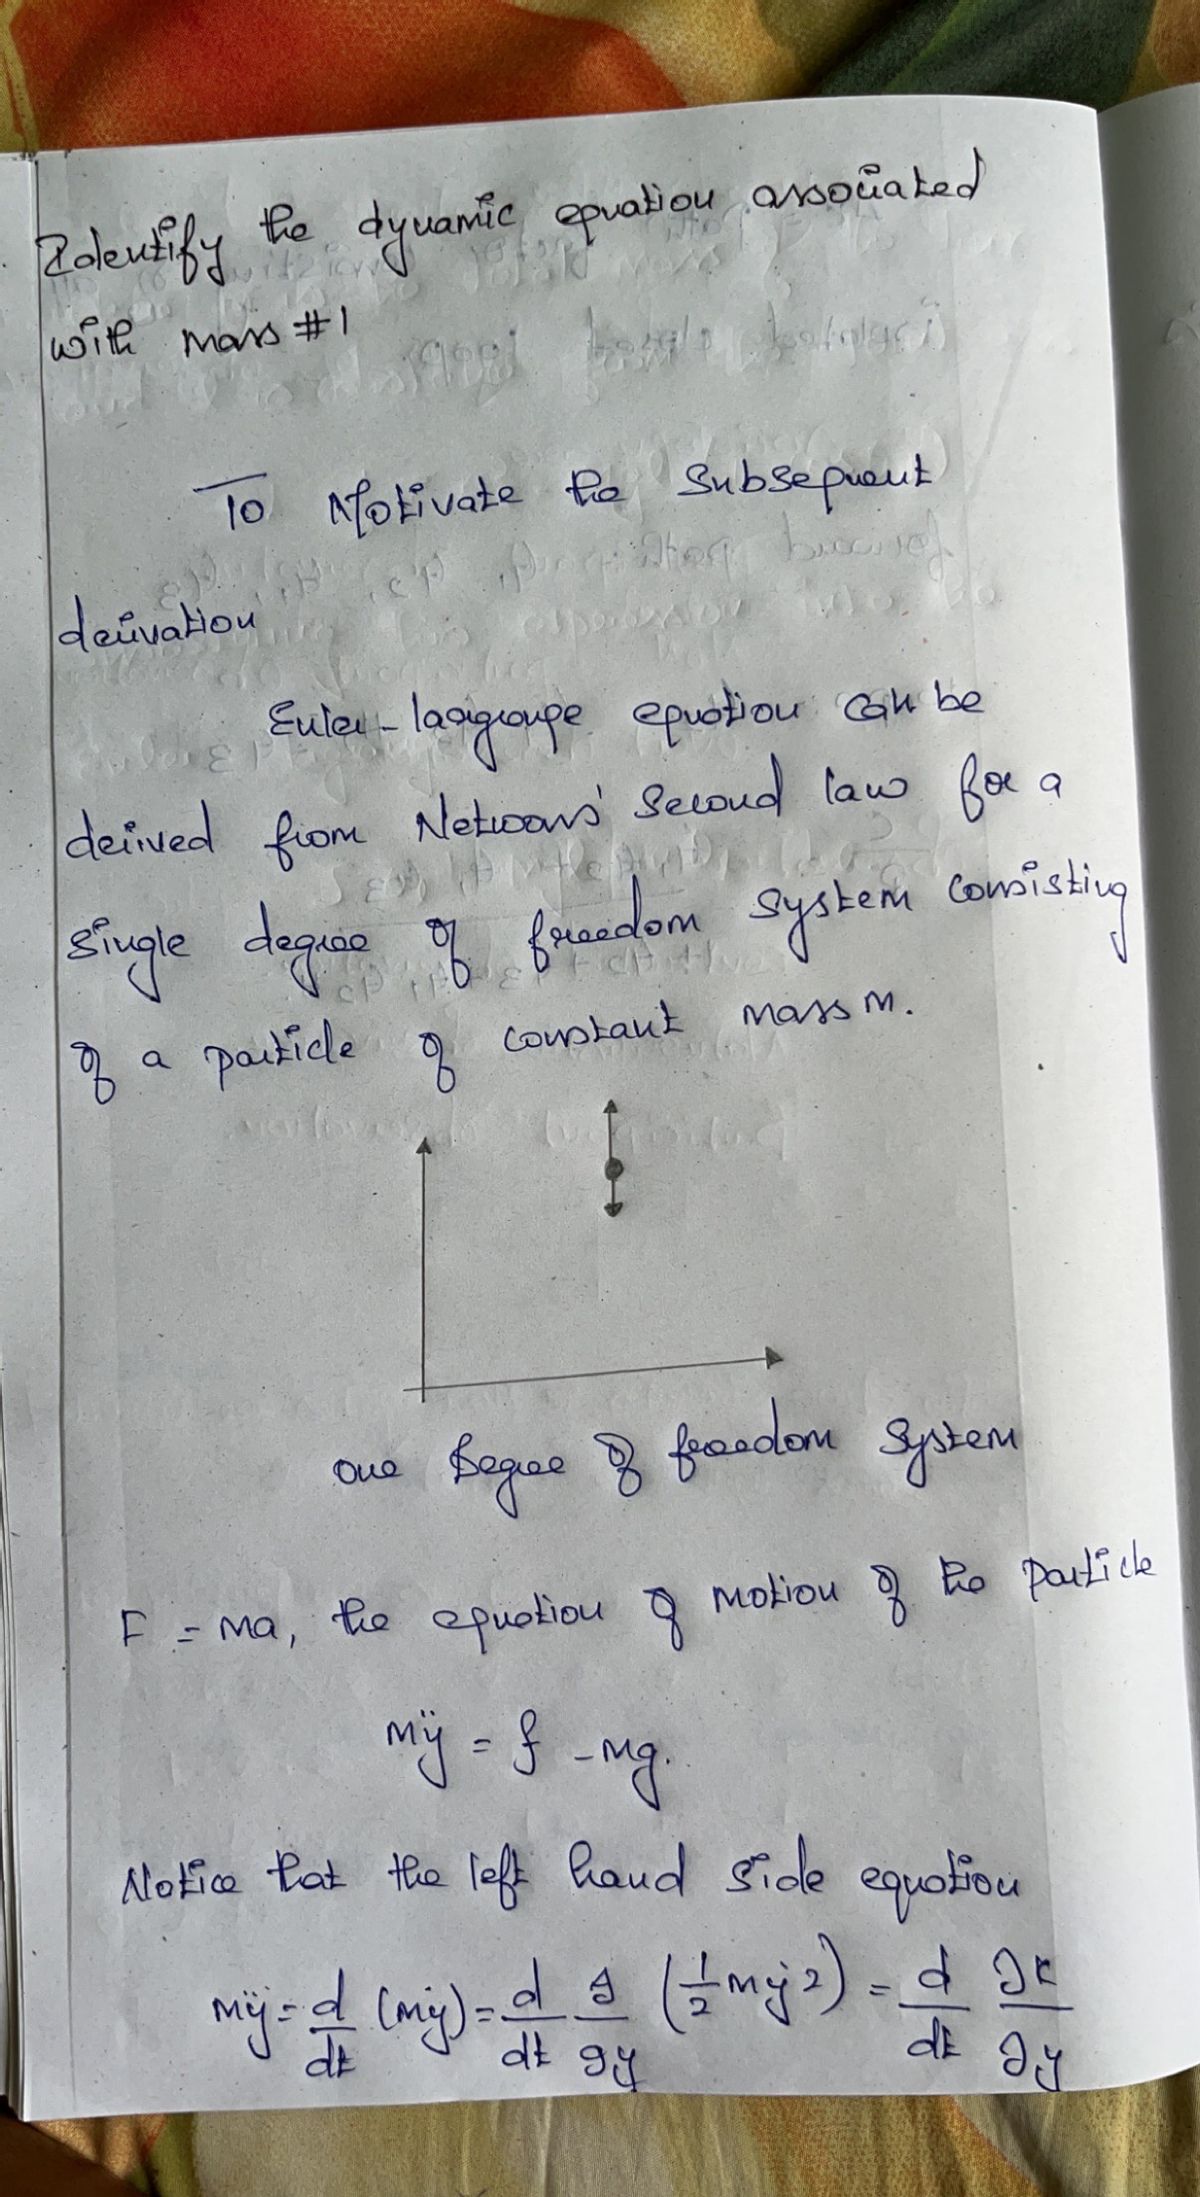 Identify the dynamic equation associated
with mass #1
To Motivate the Subsequent
derivation
Euler-lagrange equation can be
derived from Netwons' Second law for a
single degree of freedom system consisting
of a particle of constant mass m.
one Degree of freedom System
F = ma, the equation of motion of the particle
mÿ = f - mg.
Notice that the left hand side equation
mÿ = d/dt (mẏ) = d/dt ∂/∂y (1/2 mẏ2) = d/dt ∂K/∂y